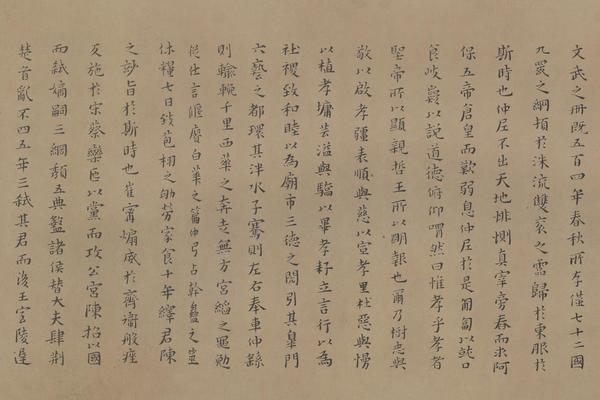 文武之冊既五百四年春秋所存僅七十二國
九罭之綱頓於洙流雙裘之雪歸於東服於
斯時也仲尼不出天地悱惻真宰旁春而求阿
保五帝倉皇而歡弱息仲尼於是匍匐以就口
食岐嶷以說道德俯仰喟然曰惟孝乎孝者
聖帝所以顯親哲王所以明報也爾乃樹忠與
敬以啟孝疆表順與慈以宣孝里杜惡與慢
以植孝墉苦溢與驕以畢孝耔立言行以為
社稷致和睦以為廟市三德之閎引其皋門
六藝之都環其泮水子騫則左右奉車仲繇
則輸輓千里西華之奔走無方宮縚之黽勉
從仕言偃賡白華之篇仲弓占幹蠱之宜
休糧七日致苞栩之劬勞家食十年繹君陳
之玅旨於斯時也崔甯煽威於齊衛般痤
交施於宋蔡欒臣以黨而攻公宮陳招以國
而弒嫡嗣三綱頹五典盩諸侯替大夫肆荆
楚首亂不四五年三弒其君而後王室陵遲